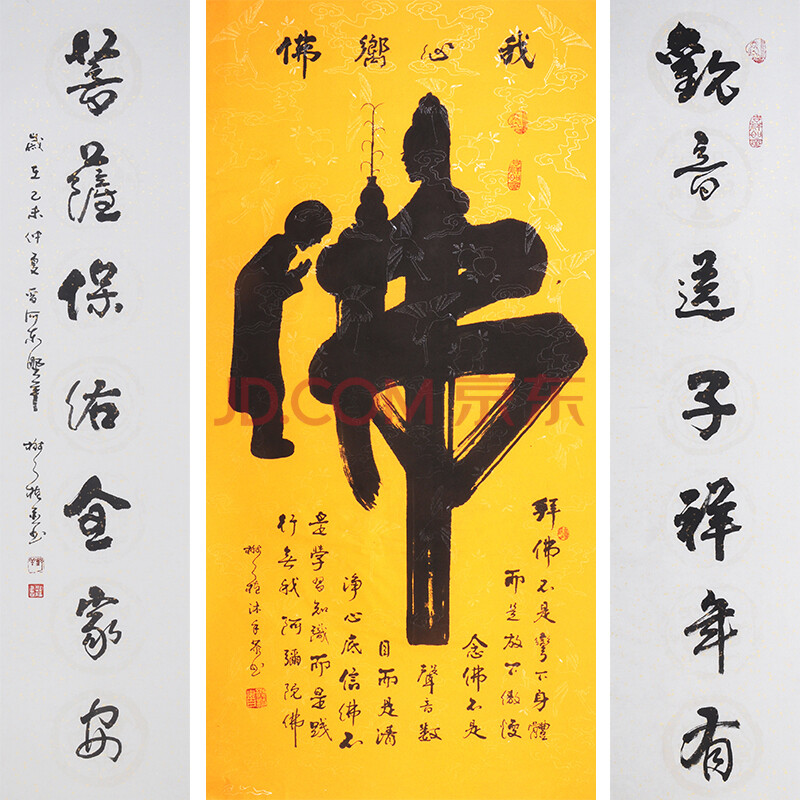 觀音送子祥年有
我心嚮佛
佛
拜佛不是彎下身體
而是放下傲慢
念佛不是
聲音数
目而是清
淨心底信佛不
是学習知識而是践
行無我阿彌陀佛
沐手敬书
菩薩保佑全家安
歲在乙未仲夏
JD.COM 京东